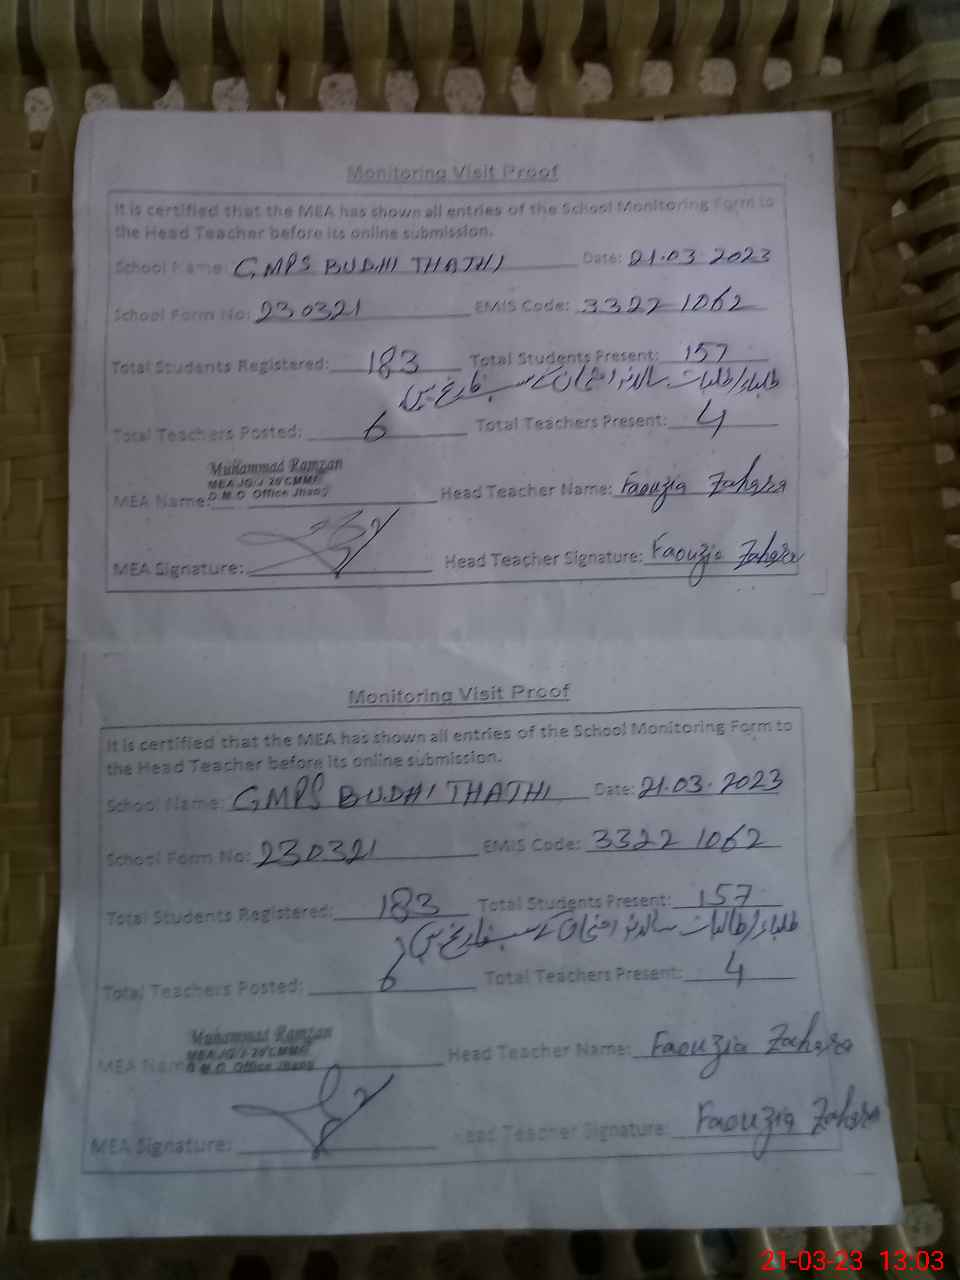 Monitoring Visit Proof
It is certified that the MEA has shown all entries of the School Monitoring Form to
the Head Teacher before its online submission.
School Name: GMPS BUDHI THATHI Date: 21.03.2023
School Form No: 230321 EMIS Code: 33221062
Total Students Registered: 183 Total Students Present: 157
طلباء/طالبات سالانہ امتحان کے سبب فارغ ہیں
Total Teachers Posted: 6 Total Teachers Present: 4
Muhammad Ramzan
MEA JG/J-20 CMMF
MEA Name: D.M.O Office Jhang Head Teacher Name: Faouzia Zahara
MEA Signature: Head Teacher Signature: Faouzia Zahara
Monitoring Visit Proof
It is certified that the MEA has shown all entries of the School Monitoring Form to
the Head Teacher before its online submission.
School Name: GMPS BUDHI THATHI Date: 21.03.2023
School Form No: 230321 EMIS Code: 33221062
Total Students Registered: 183 Total Students Present: 157
طلباء/طالبات سالانہ امتحان کے سبب فارغ ہیں
Total Teachers Posted: 6 Total Teachers Present: 4
Muhammad Ramzan
MEA JG/J-20 CMMF
MEA Name D.M.O Office Jhang Head Teacher Name: Faouzia Zahara
MEA Signature: Head Teacher Signature: Faouzia Zahara
21-03-23 13:03